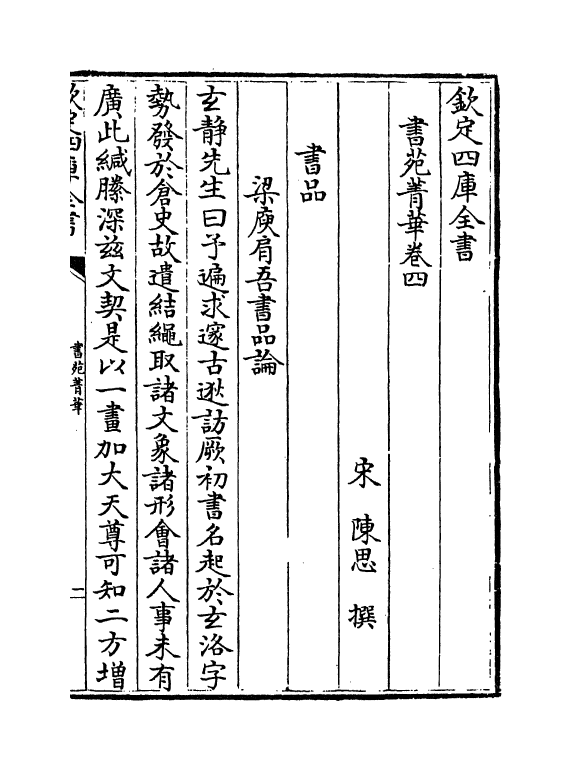 欽定四庫全書
書苑菁華卷四
宋　陳思　撰
書品
梁庾肩吾書品論
玄静先生曰予遍求邃古逖訪厥初書名起於玄洛字
勢發於倉史故遣結繩取諸文象諸形會諸人事未有
廣此緘縢深兹文契是以一畫加大天尊可知二方增
欽定四庫全書
書苑菁華
二